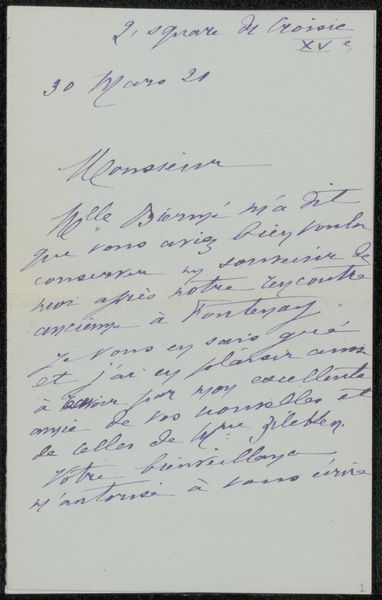 2, square de Croisic
XVe
30 Mars 21
Monsieur
Mlle Biermé m'a dit
que vous aviez bien voulu
conserver un souvenir de
moi après notre rencontre
ancienne à Fontenay.
Je vous en sais gré
et j'ai eu plaisir aussi
à avoir par mon excellente
amie de vos nouvelles et
de celles de Mme Zilcken.
Votre bienveillance
m'autorise à vous écrire
1